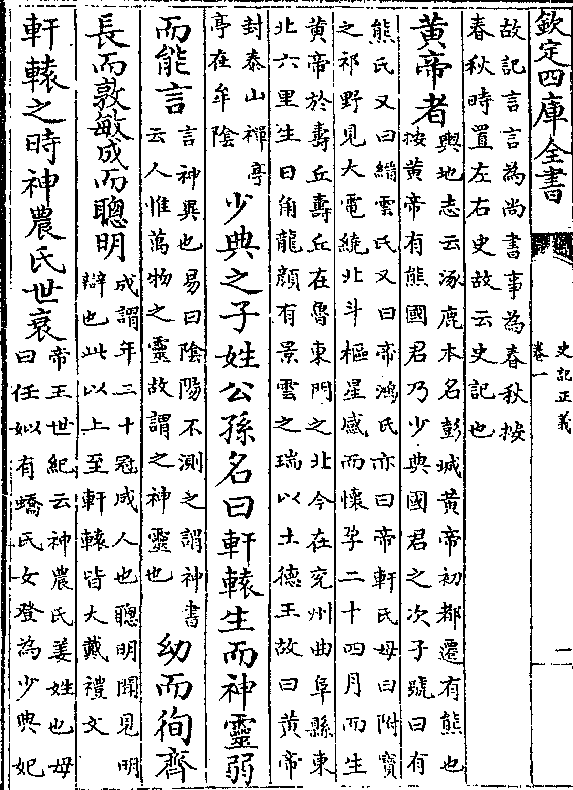 欽定四庫全書
史記正義
卷一
一
故記言言為尚書事為春秋按
春秋時置左右史故云史記也
黃帝者
輿地志云涿鹿本名彭城黃帝初都遷有熊也
按黃帝有熊國君乃少典國君之次子號曰有
熊氏又曰縉雲氏又曰帝鴻氏亦曰帝軒氏母曰附寳
之祁野見大電繞北斗樞星感而懷孕二十四月而生
黃帝於壽丘壽丘在魯東門之北今在兗州曲阜縣東
北六里生日角龍顏有景雲之瑞以土德王故曰黃帝
封泰山禪亭
亭在牟陰
少典之子姓公孫名曰軒轅生而神靈弱
而能言
言神異也易曰陰陽不測之謂神書
云人惟萬物之靈故謂之神靈也
幼而徇齊
長而敦敏成而聰明
成謂年二十冠成人也聰明聞見明
辯也此以上至軒轅皆大戴禮文
軒轅之時神農氏世衰
帝王世紀云神農氏姜姓也母
曰任姒有蟜氏女登為少典妃